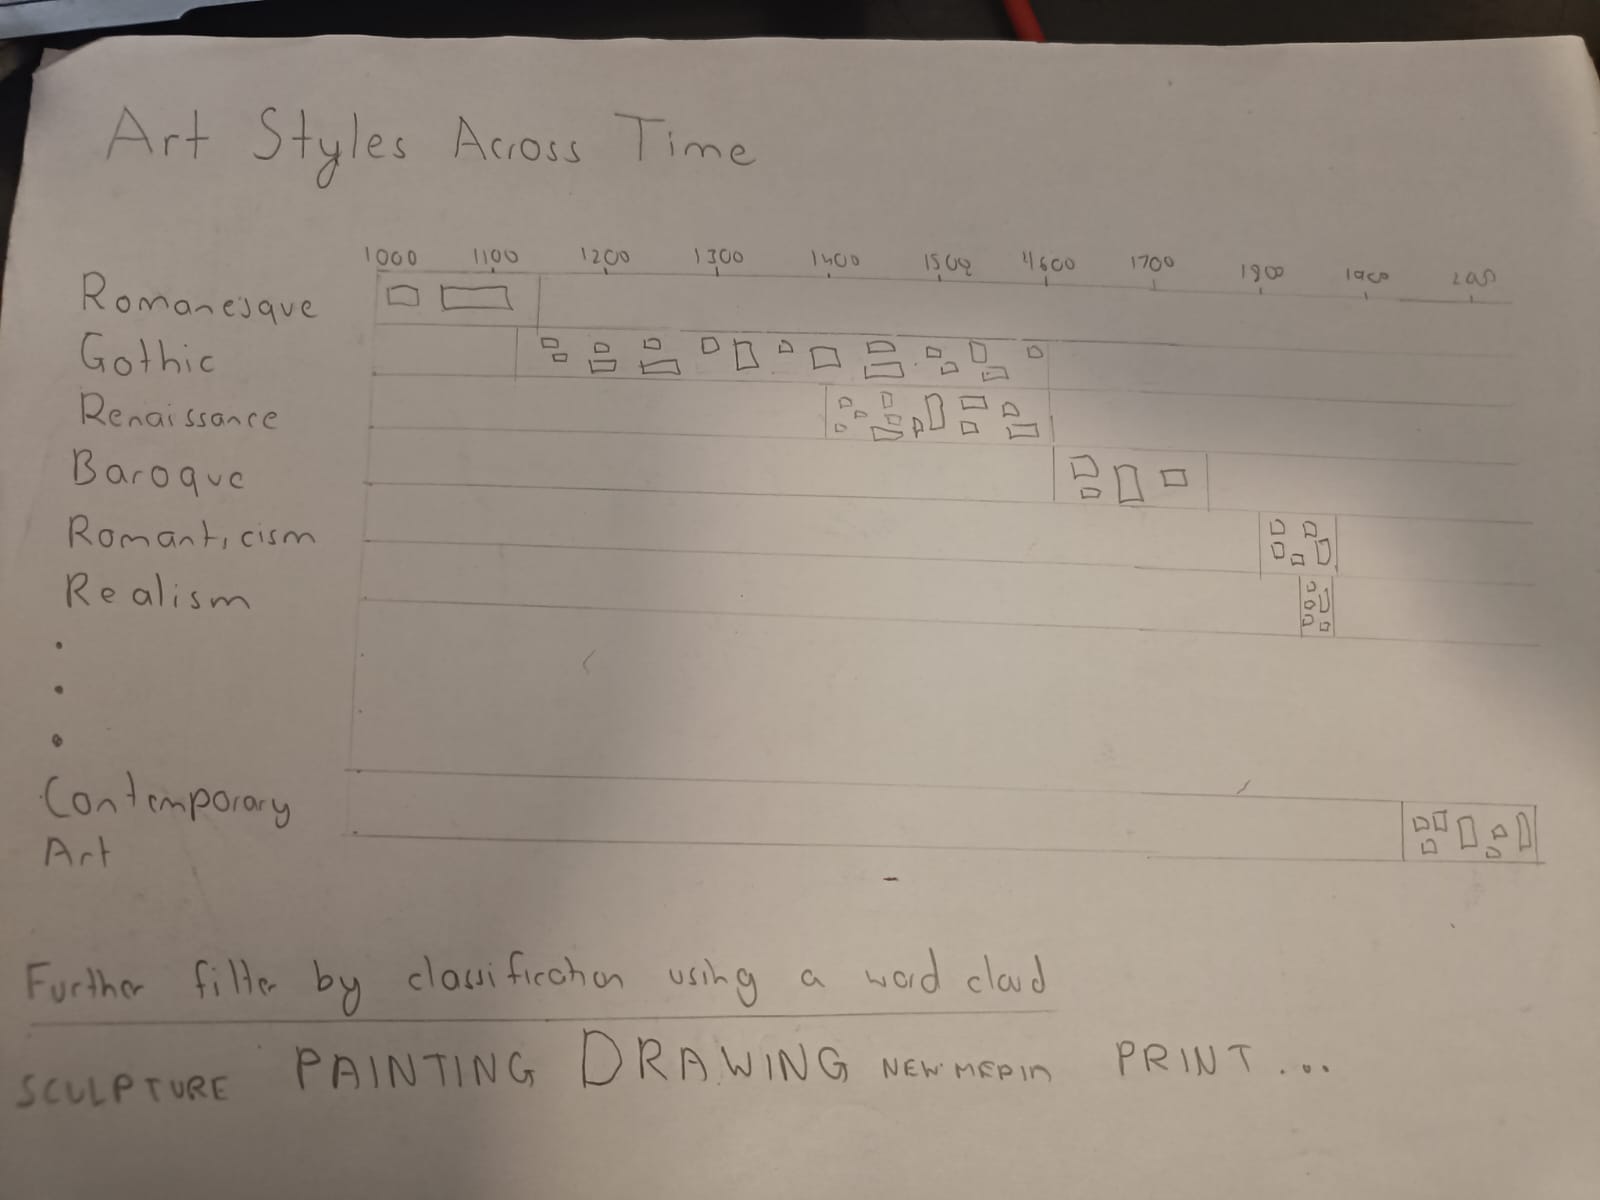 Art Styles Across Time
1000 1100 1200 1300 1400 1500 1600 1700 1800 1900 2000
Romanesque
Gothic
Renaissance
Baroque
Romanticism
Realism
.
.
.
Contemporary
Art
Further filter by classification using a word cloud
SCULPTURE PAINTING DRAWING NEW MEDIA PRINT...